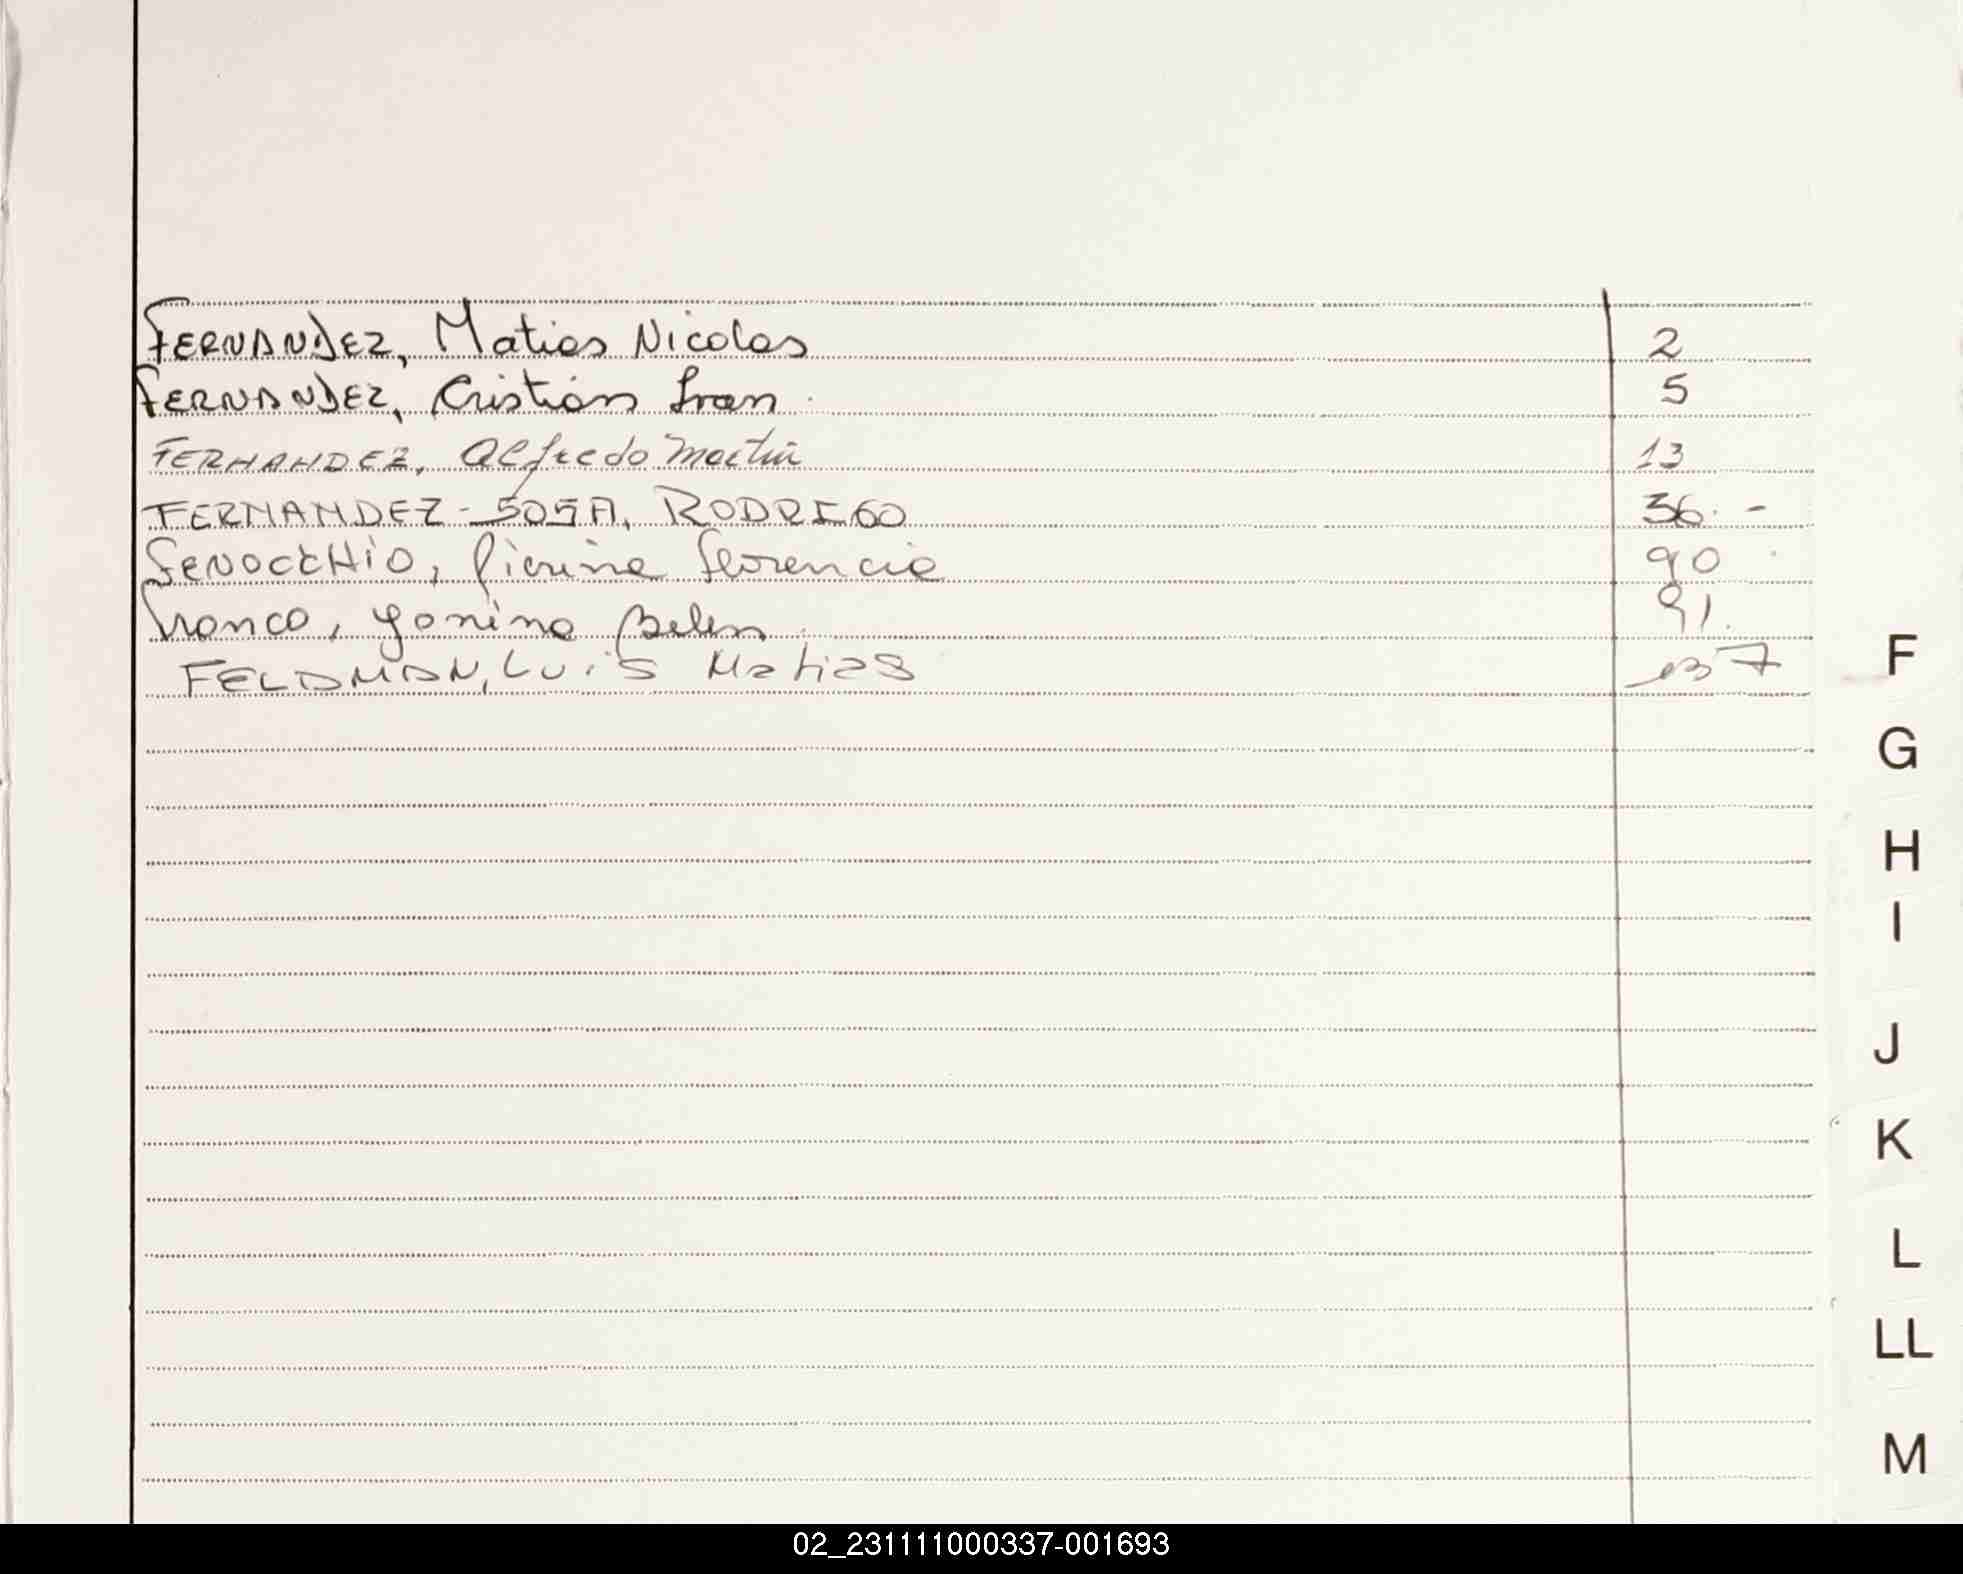 FERNANDEZ, Matias Nicolas 2
FERNANDEZ, Cristián Ivan 5
FERNANDEZ, Alfredo Martin 13
FERNANDEZ-SOSA, RODRIGO 36.-
FENOCCHIO, Pierina Florencia 90
Franco, Yanina Belen 91.
FELDMAN, Luis Matias 137
F
G
H
I
J
K
L
LL
M
02_231111000337-001693